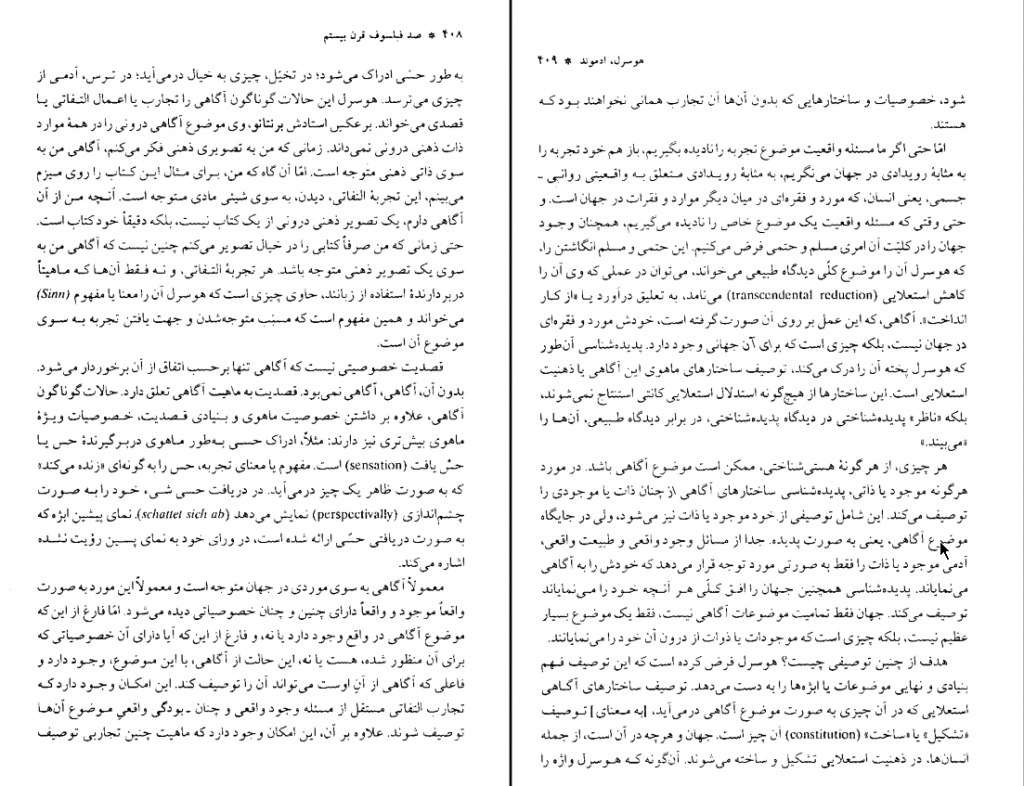 ۴۰۸ * صد فیلسوف قرن بیستم
به طور حسّی ادراک می‌شود؛ در تخیّل، چیزی به خیال درمی‌آید؛ در ترس، آدمی از
چیزی می‌ترسد. هوسرل این حالات گوناگون آگاهی را تجارب یا اعمال التفاتی یا
قصدی می‌خواند. برعکس استادش برنتانو، وی موضوع آگاهی درونی را در همهٔ موارد
ذات ذهنی درونی نمی‌داند. زمانی که من به تصویری ذهنی فکر می‌کنم، آگاهی من به
سوی ذاتی ذهنی متوجه است. امّا آن گاه که من، برای مثال این کتاب را روی میزم
می‌بینم، این تجربهٔ التفاتی، دیدن، به سوی شیئی مادی متوجه است. آنچه من از آن
آگاهی دارم، یک تصویر ذهنی درونی از یک کتاب نیست، بلکه دقیقاً خود کتاب است.
حتی زمانی که من صرفاً کتابی را در خیال تصویر می‌کنم چنین نیست که آگاهی من به
سوی یک تصویر ذهنی متوجه باشد. هر تجربهٔ التفاتی، و نه فقط آن‌ها که ماهیتاً
دربردارندهٔ استفاده از زبانند، حاوی چیزی است که هوسرل آن را معنا یا مفهوم (Sinn)
می‌خواند و همین مفهوم است که مسبّب متوجه‌شدن و جهت یافتن تجربه به سوی
موضوع آن است.
قصدیت خصوصیتی نیست که آگاهی تنها برحسب اتفاق از آن برخوردار می‌شود.
بدون آن، آگاهی، آگاهی نمی‌بود. قصدیت به ماهیت آگاهی تعلق دارد. حالات گوناگون
آگاهی، علاوه بر داشتن خصوصیت ماهوی و بنیادی قصدیت، خصوصیات ویژهٔ
ماهوی بیش‌تری نیز دارند: مثلاً، ادراک حسی به‌طور ماهوی دربرگیرندهٔ حس یا
حسّ یافت (sensation) است. مفهوم یا معنای تجربه، حس را به گونه‌ای «زنده می‌کند»
که به صورت ظاهر یک چیز درمی‌آید. در دریافت حسی شی‌ء، خود را به صورت
چشم‌اندازی (perspectivally) نمایش می‌دهد (schattet sich ab). نمای پیشین ابژه که
به صورت دریافتی حسّی ارائه شده است، در ورای خود به نمای پسین رؤیت نشده
اشاره می‌کند.
معمولاً آگاهی به سوی موردی در جهان متوجه است و معمولاً این مورد به صورت
واقعاً موجود و واقعاً دارای چنین و چنان خصوصیاتی دیده می‌شود. امّا فارغ از این که
موضوع آگاهی در واقع وجود دارد یا نه، و فارغ از این که آیا دارای آن خصوصیاتی که
برای آن منظور شده، هست یا نه، این حالت از آگاهی، با این موضوع، وجود دارد و
فاعلی که آگاهی از آنِ اوست می‌تواند آن را توصیف کند. این امکان وجود دارد که
تجارب التفاتی مستقل از مسئله وجود واقعی و چنان ـ بودگی واقعی موضوع آن‌ها
توصیف شوند. علاوه بر آن، این امکان وجود دارد که ماهیت چنین تجاربی توصیف
هوسرل، ادموند * ۴۰۹
شود، خصوصیات و ساختارهایی که بدون آن‌ها آن تجارب همانی نخواهند بود که
هستند.
امّا حتی اگر ما مسئله واقعیت موضوع تجربه را نادیده بگیریم، باز هم خود تجربه را
به مثابهٔ رویدادی در جهان می‌نگریم، به مثابهٔ رویدادی متعلق به واقعیتی روانی ـ
جسمی، یعنی انسان، که مورد و فقره‌ای در میان دیگر موارد و فقرات در جهان است. و
حتی وقتی که مسئله واقعیت یک موضوع خاص را نادیده می‌گیریم، همچنان وجود
جهان را در کلیّت آن امری مسلم و حتمی فرض می‌کنیم. این حتمی و مسلم انگاشتن را،
که هوسرل آن را موضوع کلّی دیدگاه طبیعی می‌خواند، می‌توان در عملی که وی آن را
کاهش استعلایی (transcendental reduction) می‌نامد، به تعلیق درآورد یا «از کار
انداخت». آگاهی، که این عمل بر روی آن صورت گرفته است، خودش مورد و فقره‌ای
در جهان نیست، بلکه چیزی است که برای آن جهانی وجود دارد. پدیده‌شناسی آن‌طور
که هوسرل پخته آن را درک می‌کند، توصیف ساختارهای ماهوی این آگاهی یا ذهنیت
استعلایی است. این ساختارها از هیچ‌گونه استدلال استعلایی کانتی استنتاج نمی‌شوند،
بلکه «ناظر» پدیده‌شناختی در دیدگاه پدیده‌شناختی، در برابر دیدگاه طبیعی، آن‌ها را
«می‌بیند.»
هر چیزی، از هر گونهٔ هستی‌شناختی، ممکن است موضوع آگاهی باشد. در مورد
هرگونه موجود یا ذاتی، پدیده‌شناسی ساختارهای آگاهی از چنان ذات یا موجودی را
توصیف می‌کند. این شامل توصیفی از خود موجود یا ذات نیز می‌شود، ولی در جایگاه
موضوع آگاهی، یعنی به صورت پدیده. جدا از مسائل وجود واقعی و طبیعت واقعی،
آدمی موجود یا ذات را فقط به صورتی مورد توجه قرار می‌دهد که خودش را به آگاهی
می‌نمایاند. پدیده‌شناسی همچنین جهان را افق کلّی هر آنچه خود را می‌نمایاند
توصیف می‌کند. جهان فقط تمامیت موضوعات آگاهی نیست، فقط یک موضوع بسیار
عظیم نیست، بلکه چیزی است که موجودات یا ذوات از درون آن خود را می‌نمایانند.
هدف از چنین توصیفی چیست؟ هوسرل فرض کرده است که این توصیف فهم
بنیادی و نهایی موضوعات یا ابژه‌ها را به دست می‌دهد. توصیف ساختارهای آگاهی
استعلایی که در آن چیزی به صورت موضوع آگاهی درمی‌آید، [به معنای] توصیف
«تشکیل» یا «ساخت» (constitution) آن چیز است. جهان و هرچه در آن است، از جمله
انسان‌ها، در ذهنیت استعلایی تشکیل و ساخته می‌شوند. آن‌گونه که هوسرل واژه را